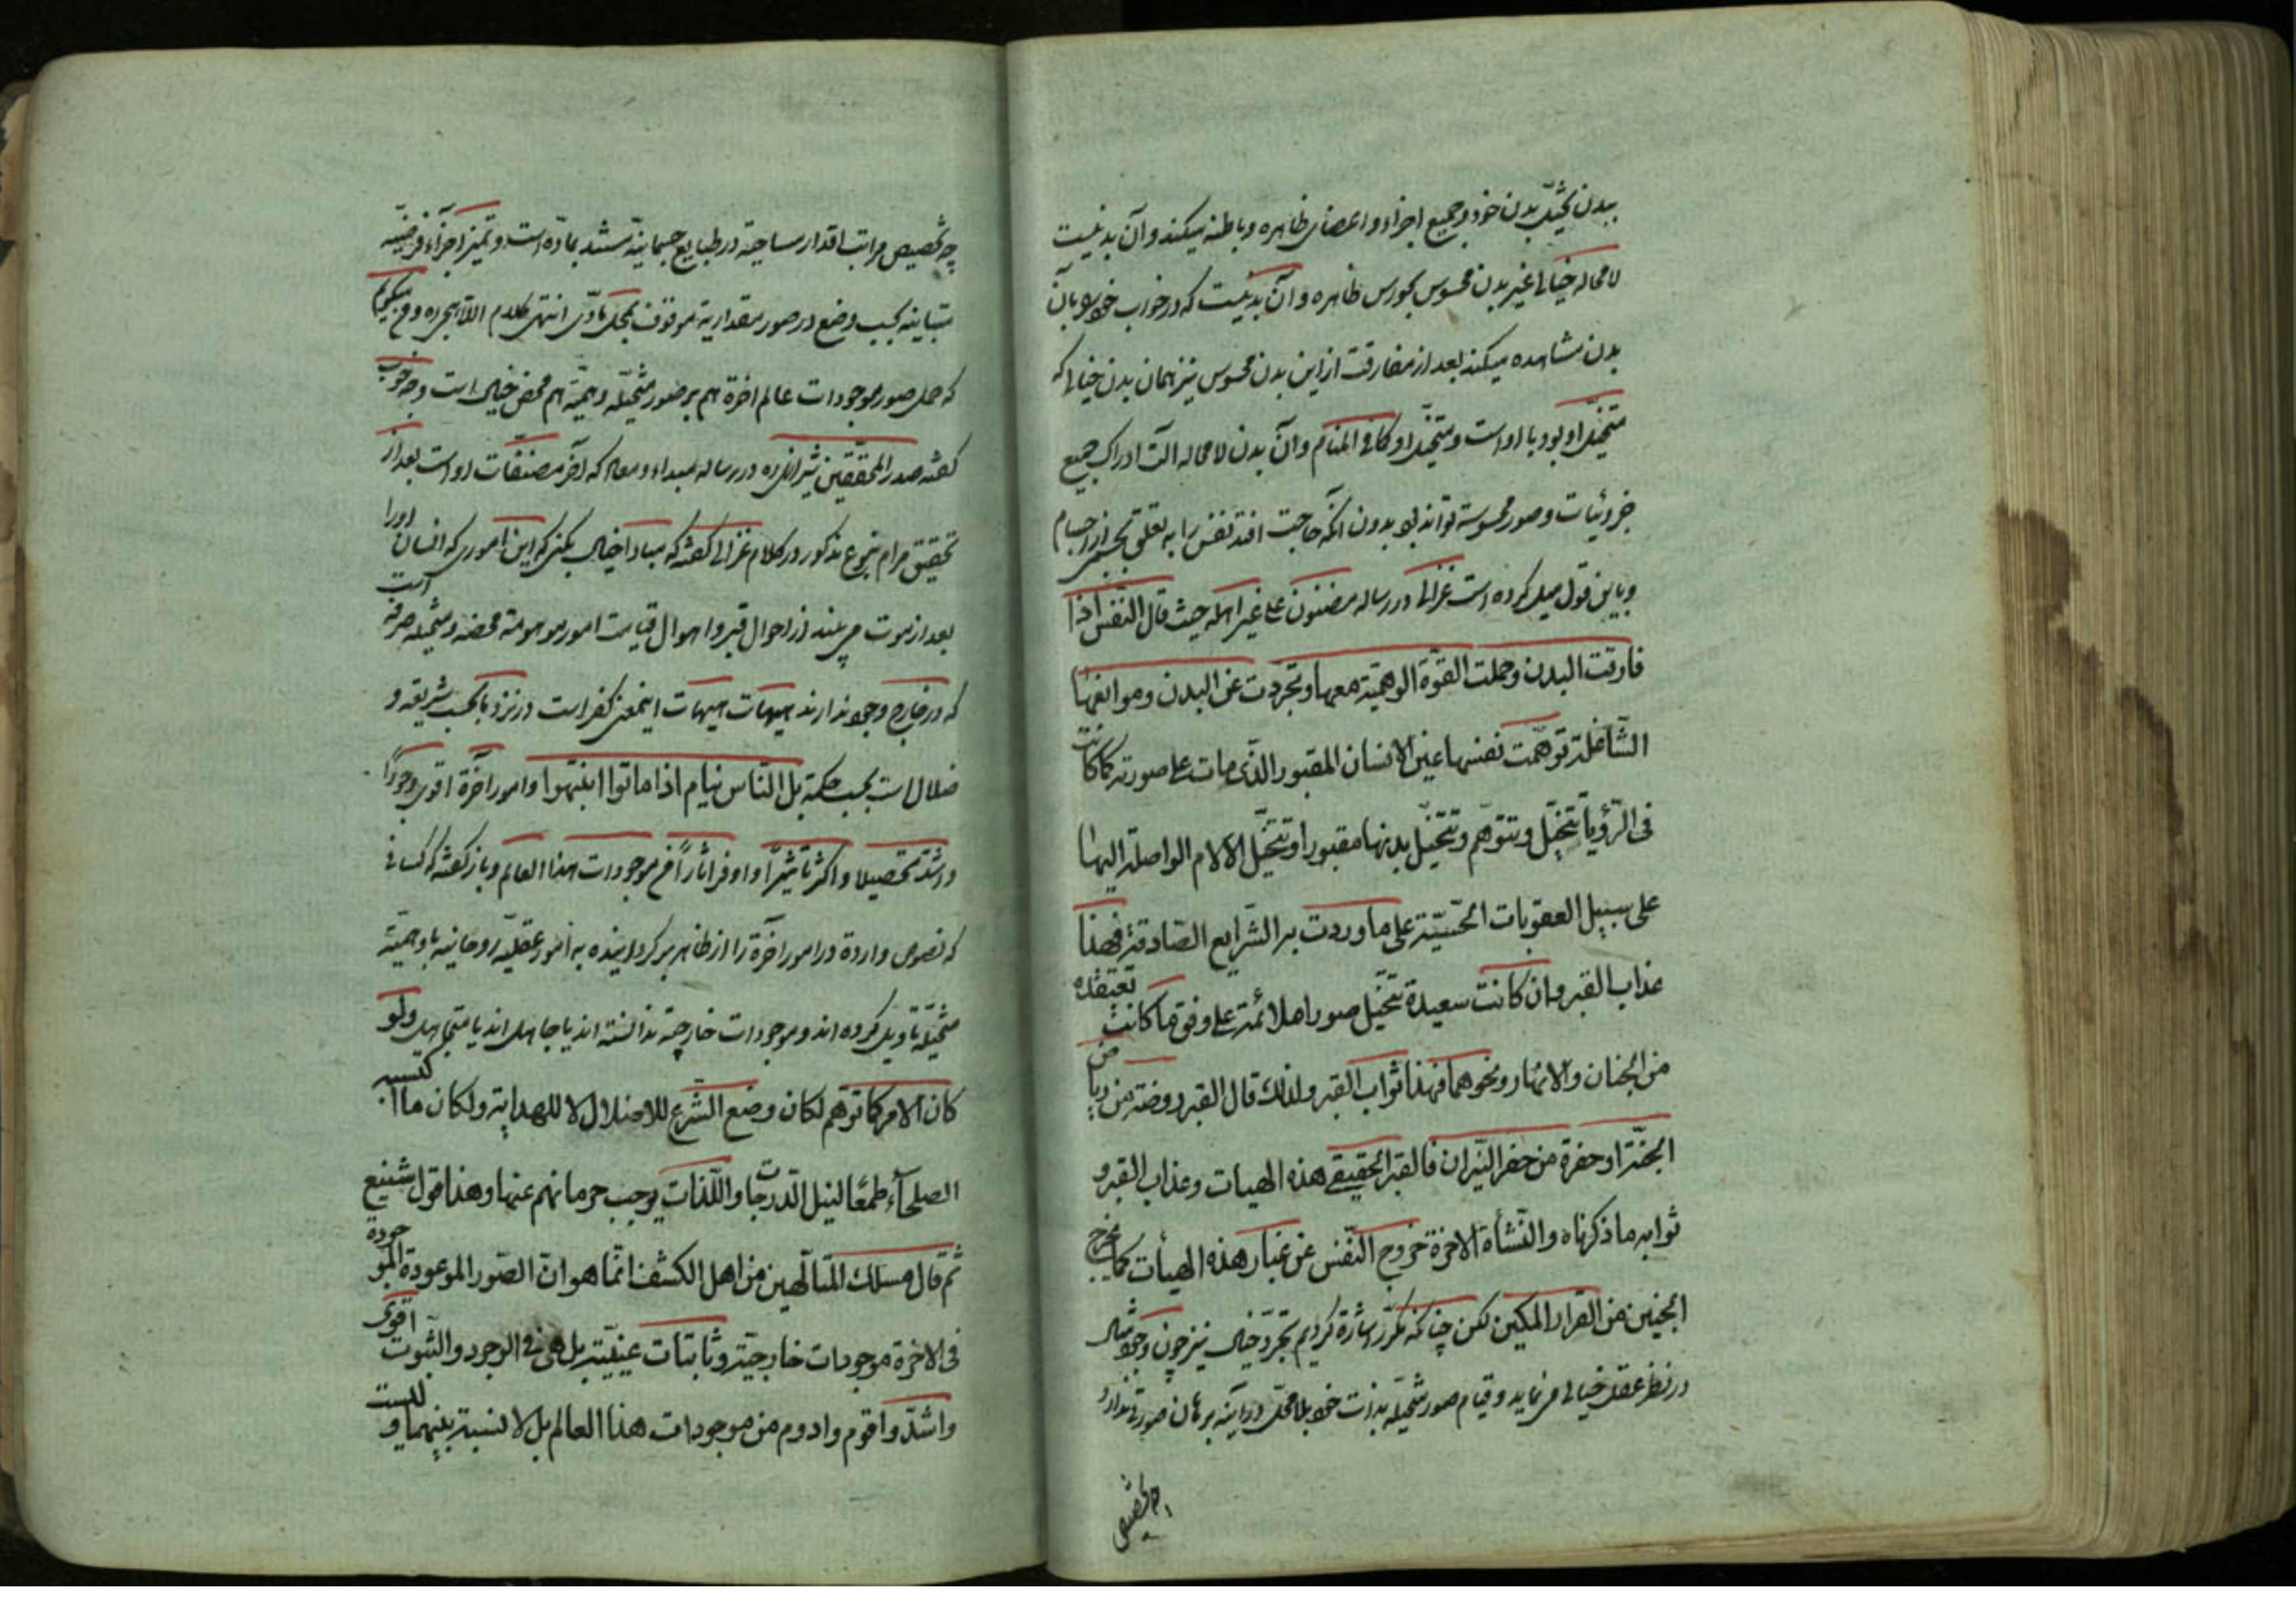 ببدن تخیّل بدن خود و جمیع اجزاء و اعضای ظاهره و باطنه میکند و آن بدنیست
لا محاله خیالی غیر بدن محسوس بحواس ظاهره و آن بدنیست که در خواب خود را بآن
بدن مشاهده میکند بعد از مفارقت از این بدن محسوس نیز همان بدن خیالی که
متخیّل او بود با او است و متخیّل او کما فی المنام و آن بدن لا محاله آلت ادراک جمیع
جزوئیات و صور محسوسه تواند بود بدون آنکه حاجت افتد نفس را به تعلق بجسمی از اجسام
و باین قول میل کرده است غزالی در رساله مضنون علی غیر اهله حیث قال النّفس اذا
فارقت البدن و حملت القوّة الوهمیّة معها و تجردت عن البدن و موانعها
الشّاغلة توهّمت نفسها عین الانسان المقبور الذّی مات علی صورته کما کانت
فی الرّؤیا تتخیّل و تتوهّم و تتخیّل بدنها مقبورا و تتخیّل الآلام الواصلة الیها
علی سبیل العقوبات الحسّیّة علی ما وردت به الشّرایع الصّادقة فهذا
عذاب القبر و ان کانت سعیدة تتخیّل صورا ملائمة علی وفق ما کانت تعتقده
من الجنان و الانهار و نحوهما فهذا ثواب القبر و لذلک قال القبر روضة من ریاض
الجنّة او حفرة من حفر النّیران فالقبر الحقیقی هذه الهیات و عذاب القبر و
ثوابه ما ذکرناه و النّشأة الآخرة خروج النّفس عن غبار هذه الهیأت کما یخرج
الجنین من القرار المکین لکن چنانکه مکرّر اشارة کردیم تجرّد خیال نیز چون وجود مثال
در نظر عقل خیالی می نماید و قیام صور متخیّله بذات خود بلا محلّ در آینه برهان صورتی ندارد
چه تخصیص
چه تخصیص مراتب اقدار مساحیّة در طبایع جسمانیّة مستند بمادّه است و تمیز اجزاء فرضیّه
متباینه بحسب وضع در صور مقداریة موقوف بمحل مادّی انتهی کلام اللاهیجی ره و می گوییم
که حمل صور موجودات عالم اخرة هم بر صور متخیّله وهمیّة هم محض خیال است و چه خوب
گفته صدر المحققین شیرازی ره در رساله مبداء و معاد که آخر مصنّفات او است بعد از
تحقیق مرام بنوع مذکور در کلام غزالی گفته که مبادا خیال بکنی که این اموری که انسان اورا
بعد از موت می بیند از احوال قبر و اهوال قیامت امور موهومة محضه و متخیله صرفه است
که در خارج وجود ندارند هیهات هیهات اینمعنی کفر است در نزد ما بحسب شریعه و
ضلال است بحسب حکمة بل النّاس نیام اذا ماتوا انتبهوا و امور آخرة اقوی وجوداً
و اشدّ تحصیلا و اکثر تأثیراً و اوفر آثاراً من موجودات هذا العالم و باز گفته که کسانی
که نصوص واردة در امور آخرة را از ظاهر برگردانیده به امور عقلیّه روحانیه یا وهمیّه
متخیّلة تاویل کرده اند و موجودات خارجیّة ندانسته اند یا جاهل اند یا متجاهل ولو
کان الامر کما توهّم لکان وضع الشّرع للاضلال لا للهدایة و لکان ما اکتسبه
الصلحآء طمعًا لنیل الدّرجات و اللّذات یوجب حرمانهم عنها و هذا قول شنیع
ثم قال مسلک المتألّهین من اهل الکشف انّما هو انّ الصّور الموعودة الموجودة
فی الاخرة موجودات خارجیّة و ثابتات عینیّة بل هی فی الوجود و الثّبوت اقوی
و اشدّ و اقوم و ادوم من موجودات هذا العالم بل لا نسبة بینهما و لیست